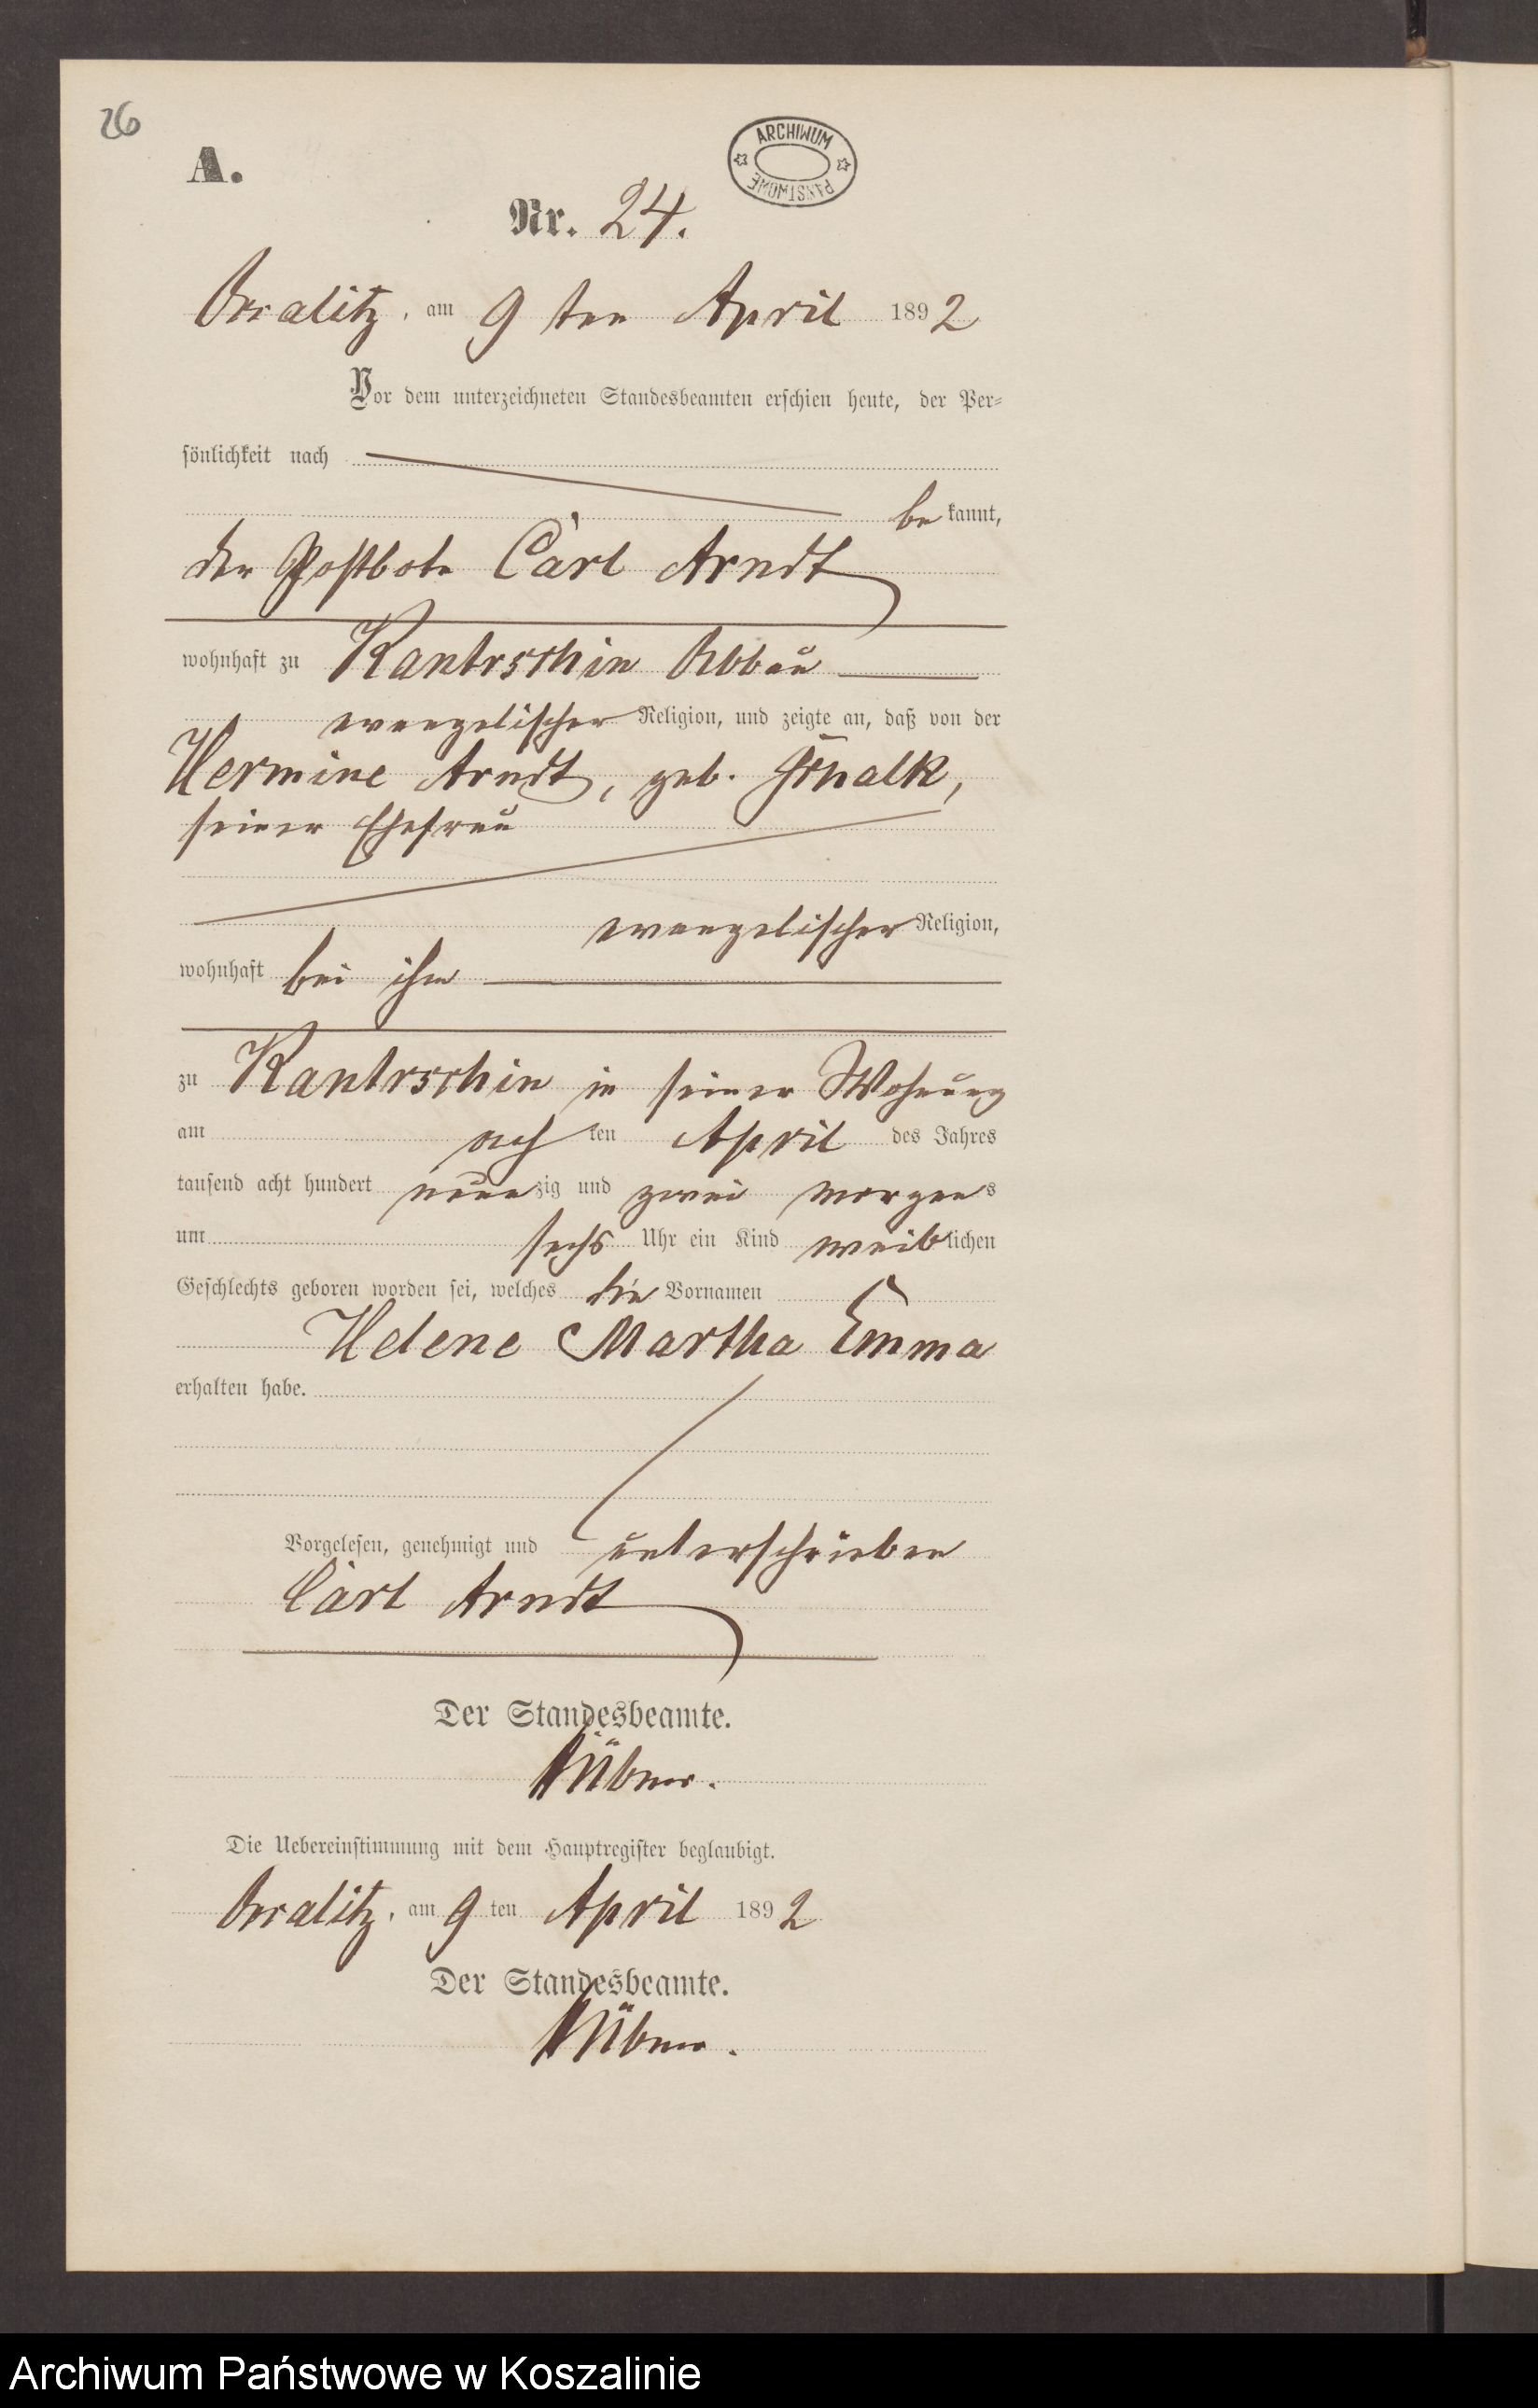 26
ARCHIWUM PAŃSTWOWE
A.
Nr. 24.
am 9 ten April 1892
Vor dem unterzeichneten Standesbeamten erschien heute, der Per-
sönlichkeit nach
be kannt,
der Postbote Carl Arndt
wohnhaft zu Kantrschin Abbau
evangelischer Religion, und zeigte an, daß von der
Hermine Arndt, geb.
seiner Ehefrau
evangelischer Religion,
wohnhaft bei ihm
zu Kantrschin in seiner Wohnung
am ach ten April des Jahres
tausend acht hundert neun zig und zwei morgen s
um sechs Uhr ein Kind weib lichen
Geschlechts geboren worden sei, welches die Vornamen
Helene Martha Emma
erhalten habe.
Vorgelesen, genehmigt und unterschrieben
Carl Arndt
Der Standesbeamte.
Hübner.
Die Uebereinstimmung mit dem Hauptregister beglaubigt.
am 9 ten April 1892
Der Standesbeamte.
Hübner.
Archiwum Państwowe w Koszalinie